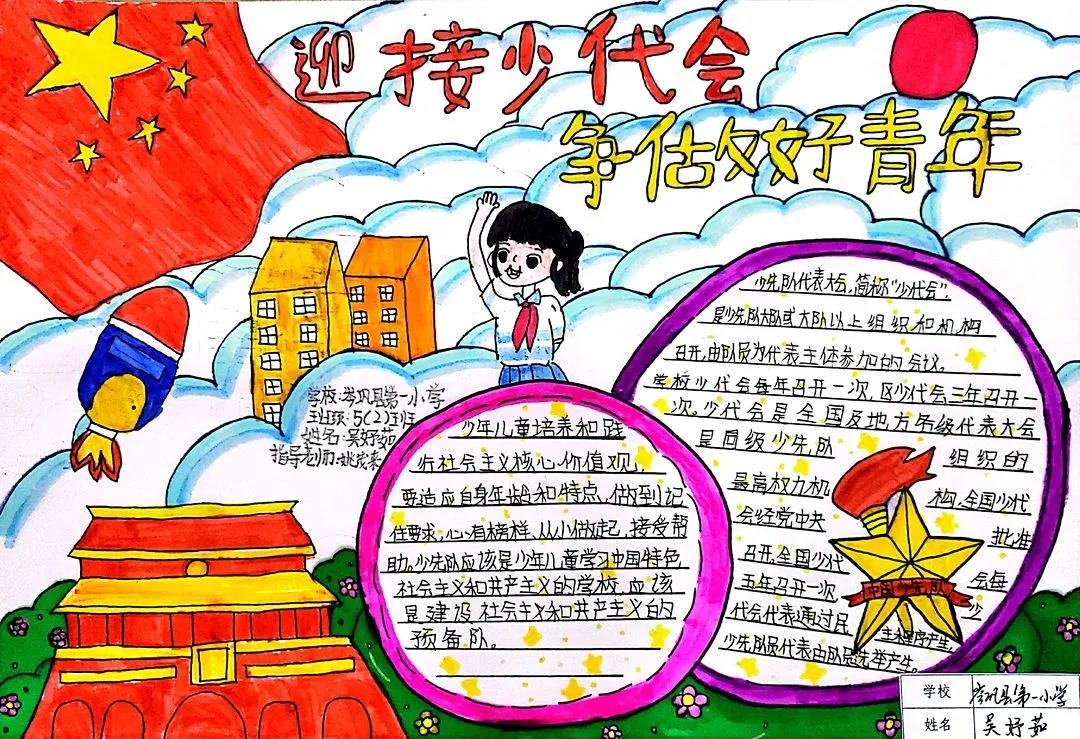 迎接少代会
争做好青年
学校:岑巩县第一小学
班级:5(2)班
姓名:吴妤茹
指导老师:
少年儿童培养和践
行社会主义核心价值观，
要适应自身年龄和特点，做到记
住要求，心有榜样，从小做起，接受帮
助。少先队应该是少年儿童学习中国特色
社会主义和共产主义的学校，应该
是建设社会主义和共产主义的
预备队。
少先队代表大会，简称“少代会”，
是少先队大队或大队以上组织和机构
召开，由队员为代表主体参加的会议。
学校少代会每年召开一次，区少代会三年召开一
次。少代会是全国及地方各级代表大会
是同级少先队 组织的
最高权力机 构，全国少代
会经党中央 批准
召开，全国少代 会每
五年召开一次 少
代会代表通过民 主程序产生，
少先队员代表由队员选举产生。
中国少年队
学校 岑巩县第一小学
姓名 吴妤茹